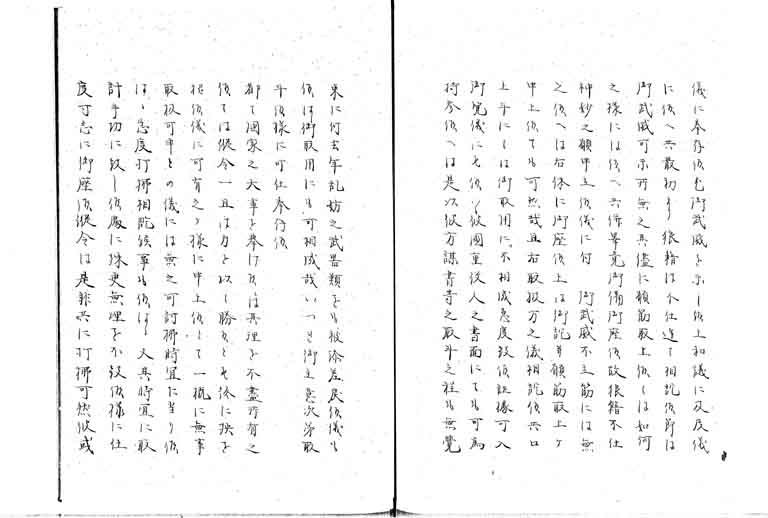 儀に奉存候も御武威を示し候上和議に及候儀
に候へ共最初より狼藉は不仕追て相詫候節は
御武威可示所無之其儘に願筋取上候ては如何
之様には候へ共備等竟御備御座候故狼藉不仕
神妙之願申立候儀に付 御武威不立筋には無
之候へは右体に御座候上は御詫并願筋取上ケ
申上候ても可然哉且右取扱方之儀相詫候共口
上斗にては御取用に不相成急度致候証拠可入
御覧儀にも候ハ彼国重役人之書面にても可為
持参候へは是以彼方謀書等之取斗之程も無覚
束に付去年乱妨之武器類をも被渡差戻候儀も
候は御取用にも可相成哉いつれ御主意次第取
斗候様に可仕奉存候
都て国家之大事を挙け候は其理を不尽所有之
候ては縦令一旦は力を以て勝候とも終に殃を
招候儀に可有之ク様に申上候とて一概に無事
取扱可申との儀には無之可討払時宜に当り候
はゝ急度打払相詫候事も候はゝ夫其時宜に取
計手切に致し候処に殊更無理を不致候様に仕
度寸志に御座候縦令は是非共に打払可然候或